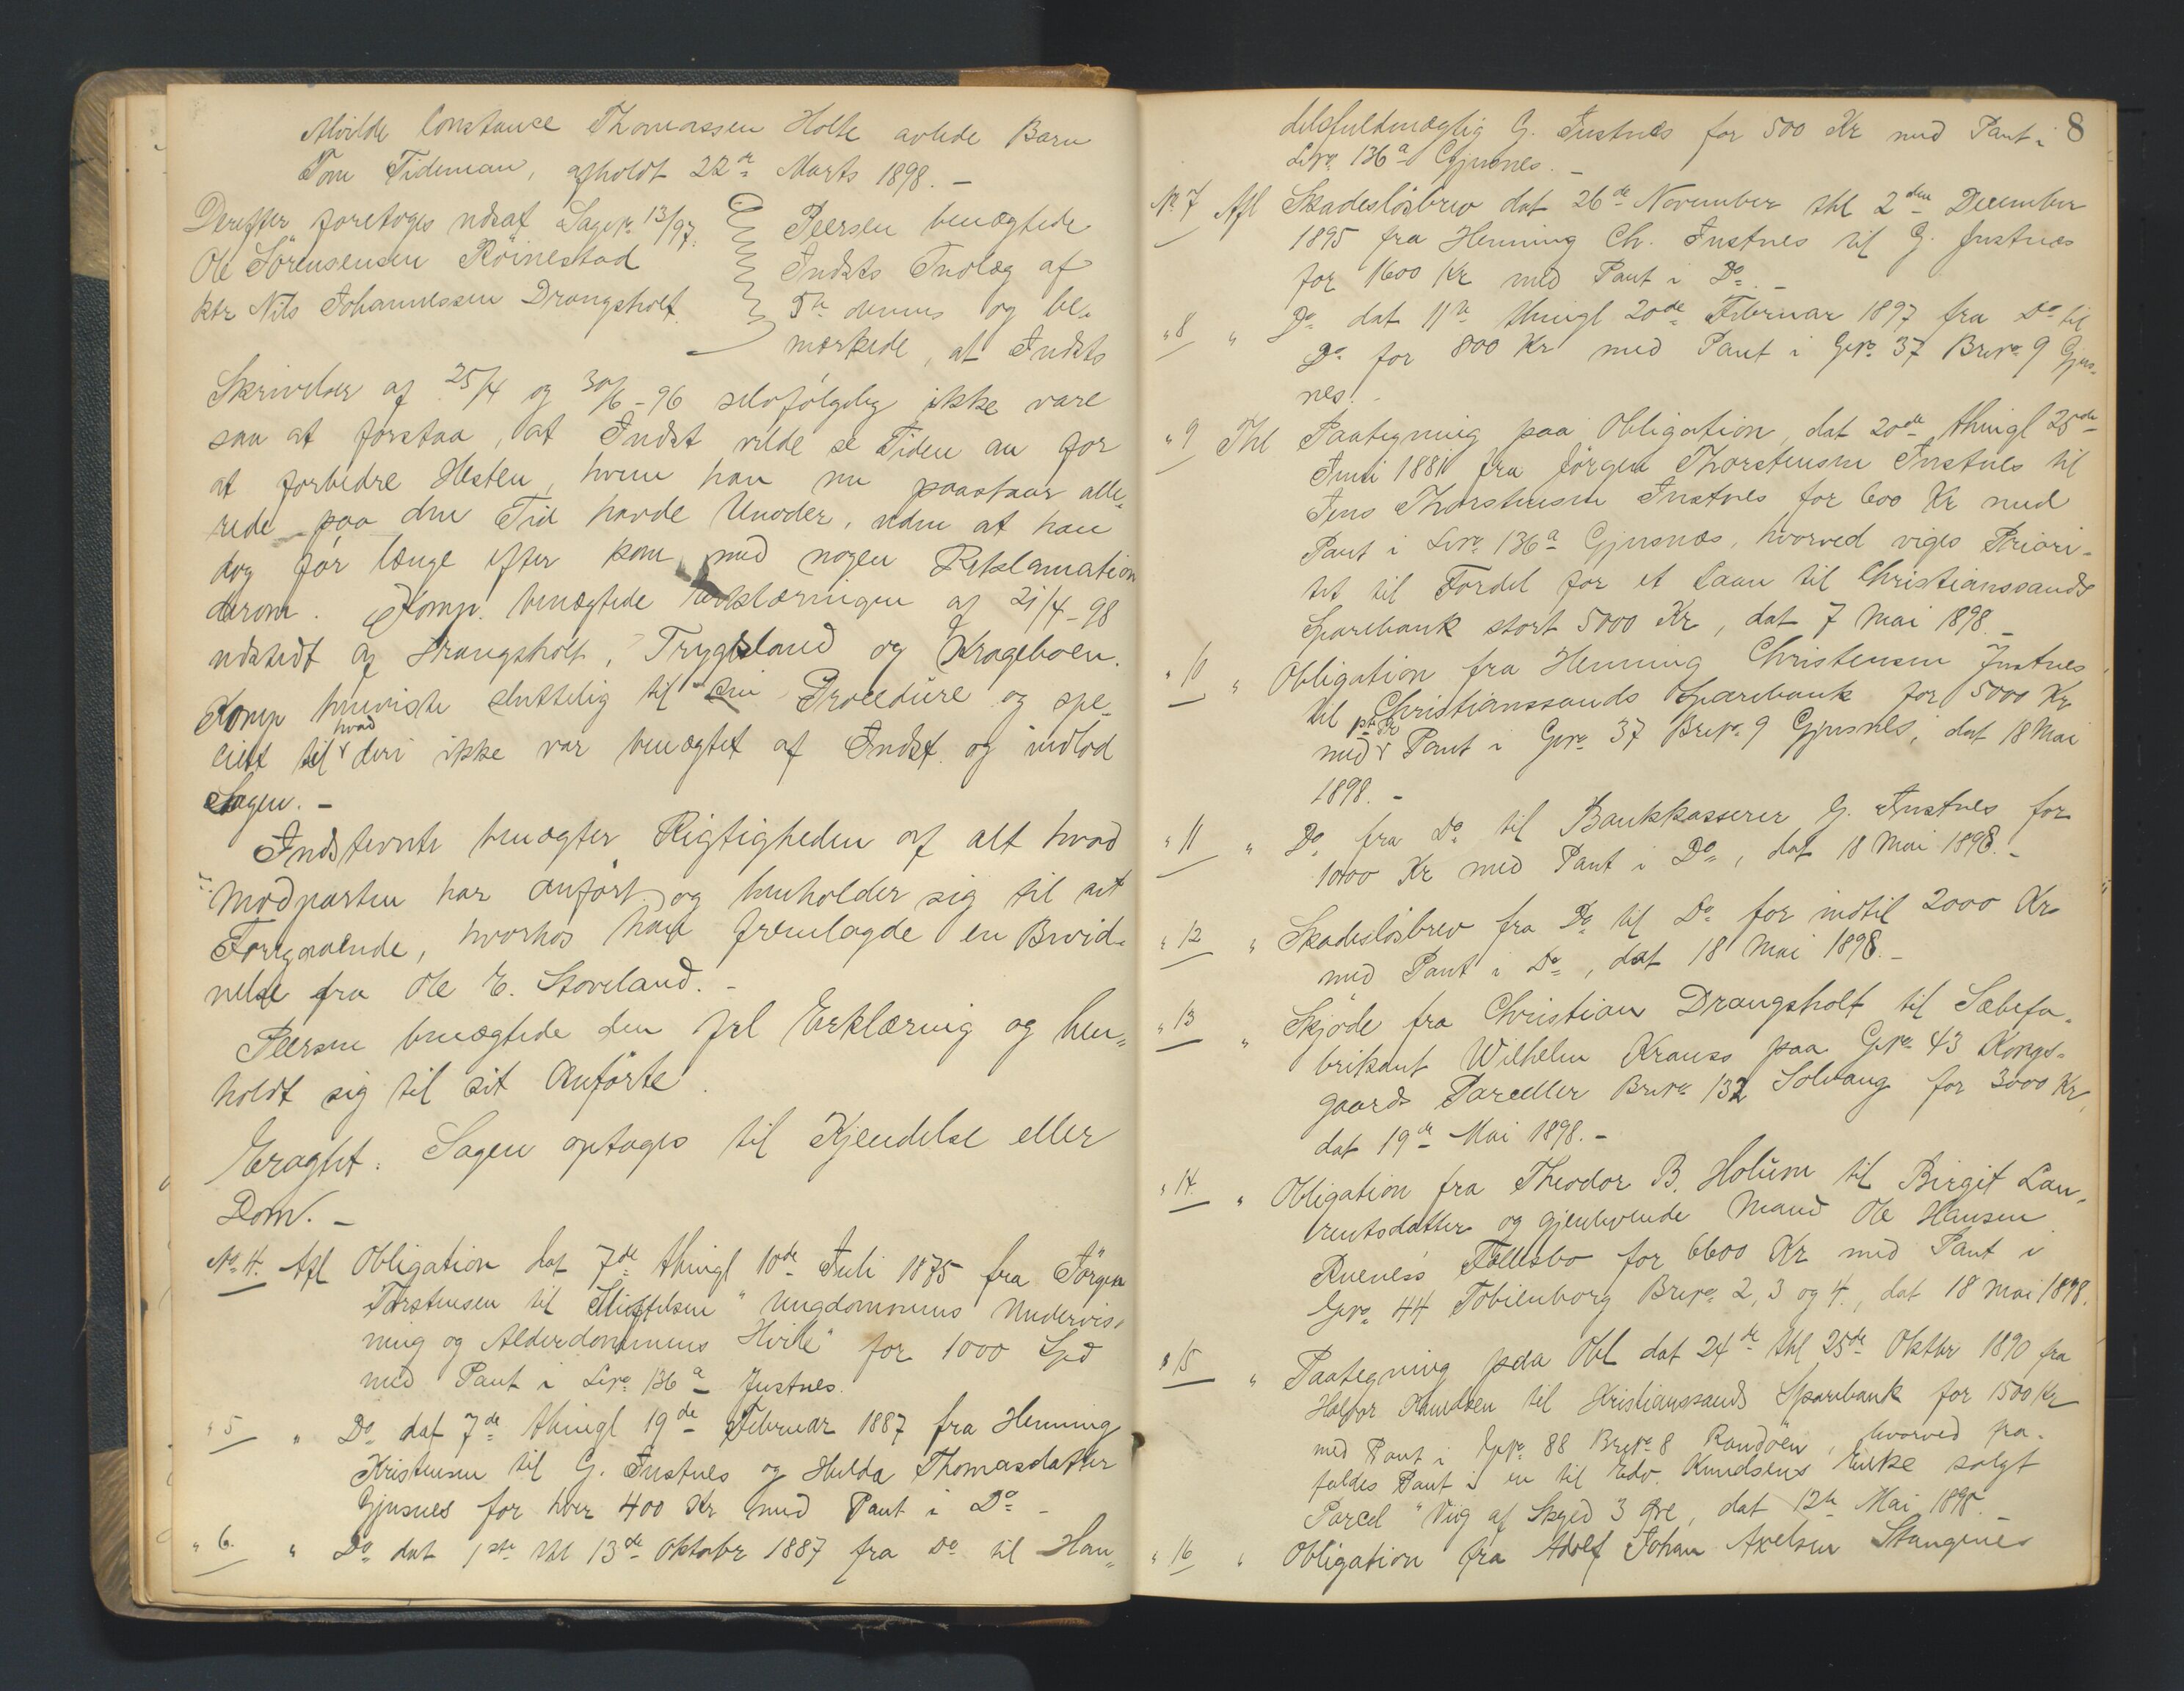 Alvilde Constanse Thomassen Holte avlede Barn
Tom Tideman, afholdt 22de Marts 1898. –
Derefter foretoges udsat Sagno 13/97:
Ole Sörensensen Röinestad
ktr Nils Johannessen Drangsholt.
Peersen benægtede
Indsts Indlæg af
5te dennes og be-
mærkede, at Indsts
Skrivelser af 25/4 og 30/6-96 selvfölgelig ikke vare
saa at forstaa, at Indst vilde se Tiden an for
at forbedre Hesten, hvem han nu paastaar alle-
rede paa den Tid havde Unoder, uden at han
dog för længe efter kom med nogen Reklamation
derom. Komp. benægtede Erklæringen af 21/4-98
udstedt af Drangsholt, Trygsland og Krageboen.
Komp henviste sluttelig til sin Procedüre og spe-
cielt til hvad deri ikke var benægtet af Indst. og indlod
Sagen. –
Indstevnte benægter Rigtigheden af alt hvad
Modparten har anfört og henholder sig til sit
Foregaaende, hvorhos han fremlagde en Bevid-
nelse fra Ole E. Stoveland. –
Peersen benægtede den frl Erklæring og hen-
holdt sig til sit Anförte.
Eragtet: Sagen optages til Kjendelse eller
Dom. –
No 4. Afl Obligation dat 7de thingl 10de Juli 1875 fra Jörgen
Torstensen til Stiftelsen "Ungdommens Undervis-
ning og Alderdommens Hvile" for 1000 Spd
med Pant i Lno 136a Justnes.
" 5 " Do dat 7de thingl 19de Februar 1887 fra Henning
Kristensen til G. Justnes og Hulda Thomasdatter
Gjusnes for hver 400 Kr med Pant i Do –
" 6. " Do dat 1ste thl 13de Oktobr 1887 fra Do til Han-
8
delsfuldmægtig G. Justnes for 500 Kr med Pant i
Lno 136a Gjusnes. –
No 7 Afl Skadeslösbrev dat 26de November thl 2den December
1895 fra Henning Ch. Justnes til G. Justnes
for 1600 Kr med Pant i Do. –
" 8 " Do dat 11te thingl 20de Februar 1897 fra Do til
Do for 800 Kr med Pant i Gno 37 Brno 9 Gjus-
nes. –
" 9 Thl Paategning paa Obligation, dat 20de thingl 25de
Juni 1881 fra Jörgen Thorstensen Justnes til
Jens Thorstensen Justnes for 600 Kr med
Pant i Lno 136a Gjusnæs, hvorved viges Priori-
tet til Fordel for et Laan til Christianssands
Sparebank stort 5000 Kr, dat 7 Mai 1898. –
" 10 " Obligation fra Henning Christensen Justnes
til Christianssands Sparebank for 5000 Kr
med Pant i Gno 37 Brno 9 Gjusnes, dat 18 Mai
1898. –
" 11 " Do fra Do til Bankkasserer G. Justnes for
1000 Kr med Pant i Do, dat 18 Mai 1898. –
" 12 " Skadeslösbrev fra Do til Do for indtil 2000 Kr
med Pant i Do, dat 18 Mai 1898. –
" 13 " Skjöde fra Christian Drangsholt til Sæbefa-
brikant Wilhelm Krauss paa Gno 43 Kongs-
gaards Parceller Brno 132 Solvang for 3000 Kr,
dat 19de Mai 1898. –
" 14. " Obligation fra Theodor B. Holum til Birgit Lau-
rentsdatter og gjenlevende Mand Ole Hansen
Ruenes Fællesbo for 6600 Kr med Pant i
Gno 44 Tobienborg Brno 2, 3 og 4., dat 18 Mai 1898.
" 15 " Paategning paa Obl dat 24de thl 25de Oktbr 1890 fra
Halvor Knudsen til Kristianssands Sparebank for 1500 Kr
med Pant i Gno 88 Brno 8 Randöen, hvorved fra-
faldes Pant i en til Edv. Knudsens Enke solgt
Parcel "Vig" af Skyld 3 Öre, dat 12te Mai 1898. –
" 16 " Obligation fra Adolf Johan Axelsen Stangenes